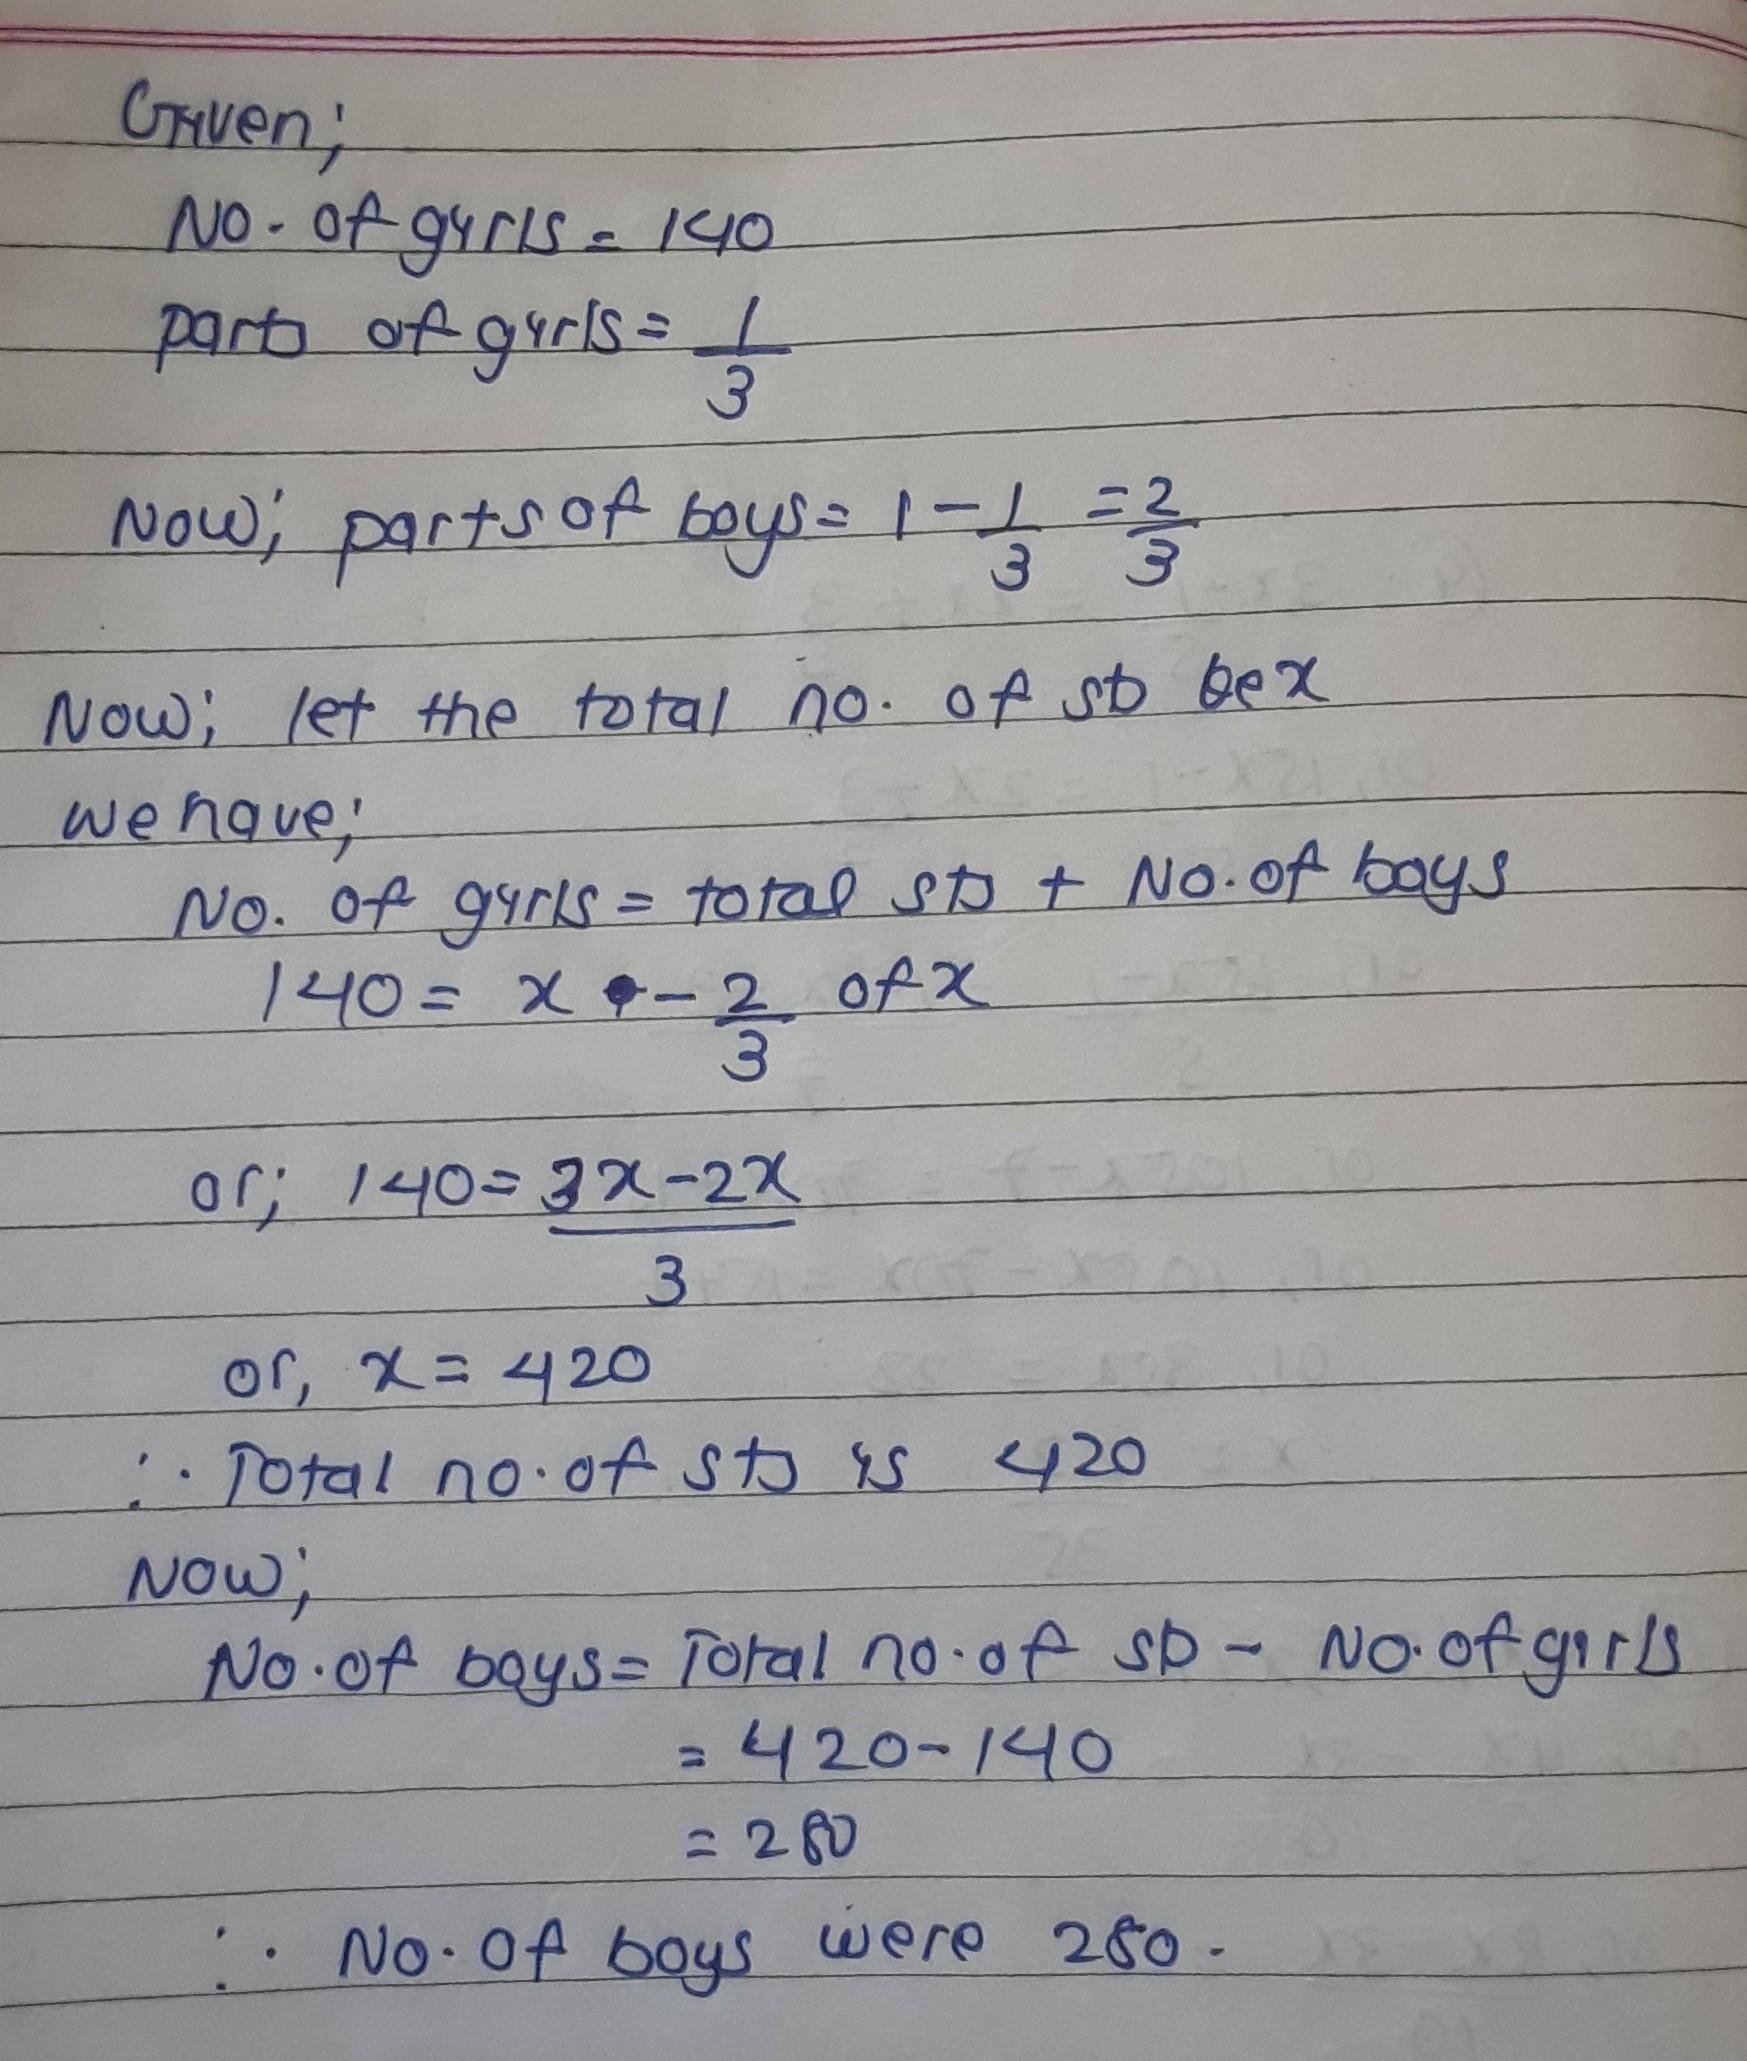 Given;
No. of girls = 140
part of girls = 1/3
Now; parts of boys = 1 - 1/3 = 2/3
Now; let the total no. of st be x
we have;
No. of girls = total sts + No. of boys
140 = x - 2/3 of x
or; 140 = 3x-2x/3
or, x = 420
∴ Total no. of sts is 420
Now;
No. of boys = Total no. of st - No. of girls
= 420 - 140
= 280
∴ No. of boys were 280.